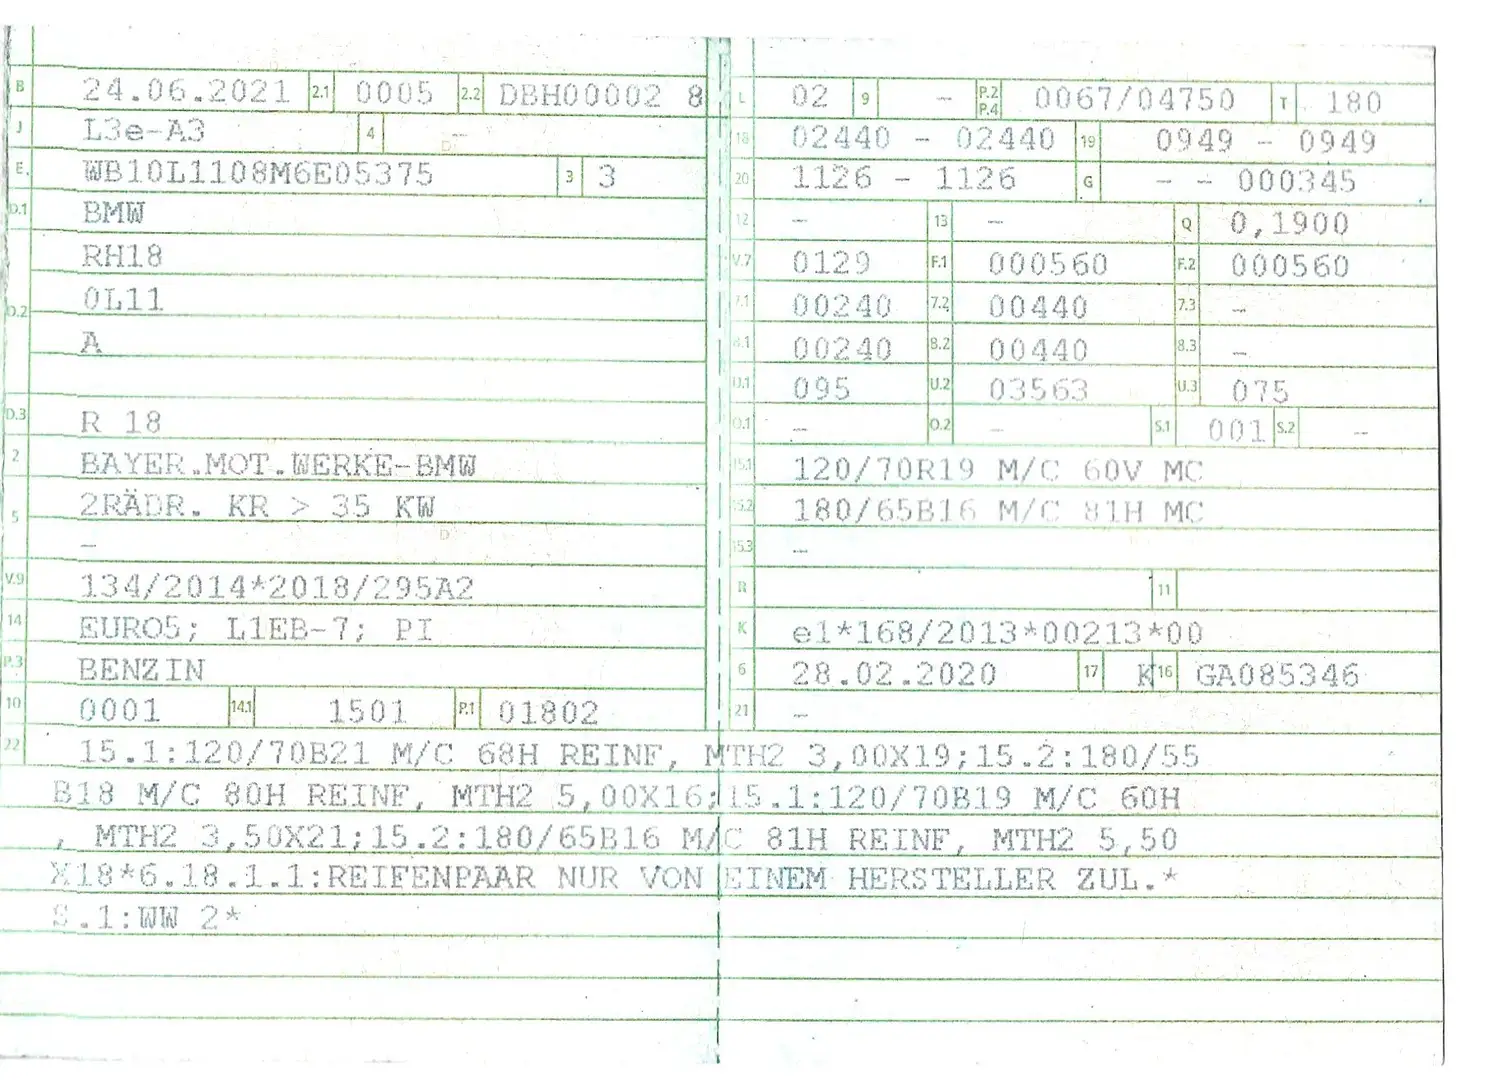 B 24.06.2021 2.1 0005 2.2 DBH00002 8
J L3e-A3 4 -
E. WB10L1108M6E05375 3 3
D.1 BMW
RH18
D.2 0L11
A
D.3 R 18
2 BAYER.MOT.WERKE-BMW
5 2RÄDR. KR > 35 KW
-
V.9 134/2014*2018/295A2
14 EURO5; L1EB-7; PI
P.3 BENZIN
10 0001 14.1 1501 P.1 01802
L 02 9 - P.2 P.4 0067/04750 T 180
18 02440 - 02440 19 0949 - 0949
20 1126 - 1126 G - - 000345
12 - 13 - Q 0,1900
V.7 0129 F.1 000560 F.2 000560
7.1 00240 7.2 00440 7.3 -
8.1 00240 8.2 00440 8.3 -
U.1 095 U.2 03563 U.3 075
O.1 - O.2 - S.1 001 S.2 -
15.1 120/70R19 M/C 60V MC
15.2 180/65B16 M/C 81H MC
15.3 -
R 11
K e1*168/2013*00213*00
6 28.02.2020 17 K 16 GA085346
21 -
22 15.1:120/70B21 M/C 68H REINF, MTH2 3,00X19;15.2:180/55
B18 M/C 80H REINF, MTH2 5,00X16;15.1:120/70B19 M/C 60H
, MTH2 3,50X21;15.2:180/65B16 M/C 81H REINF, MTH2 5,50
X18*6.18.1.1:REIFENPAAR NUR VON EINEM HERSTELLER ZUL.*
S.1:WW 2*